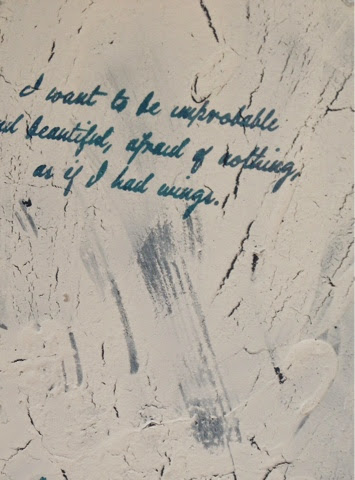 I want to be improbable
nd beautiful, afraid of nothing,
as if I had wings.